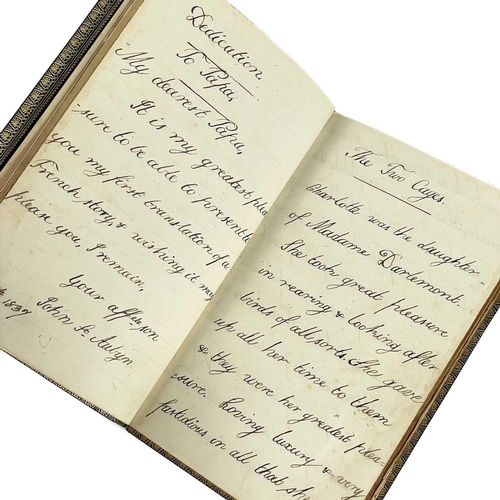 Dedication
To Papa,
My dearest Papa,
It is my greatest plea
-sure to be able to present to
you my first translation of a
French story, & wishing it may
please you, I remain,
Your affte son
John
1897
The Two Cages.
Charlotte was the daughter
of Madame Darlemont.
She took great pleasure
in rearing & looking after
birds of all sorts. She gave
up all her time to them
& they were her greatest plea-
-sure. Loving luxury & very
fastidious in all that she